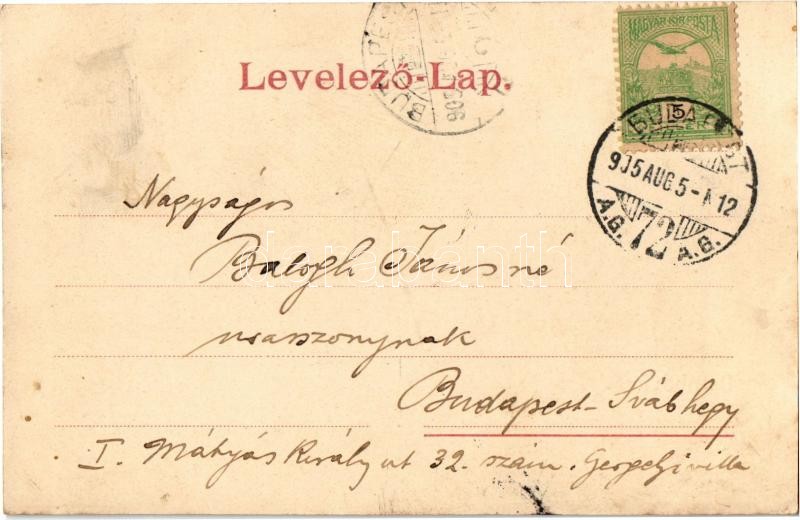 MAGYAR KIR. POSTA
5
Levelező-Lap.
BUDAPEST
905 AUG 5 - 12
A.G. 72 A.G.
Nagyságos
Balogh Jánosné
úrasszonynak
Budapest - Svábhegy
I. Mátyás Király út 32. szám. Gergelyi villa
darabanth